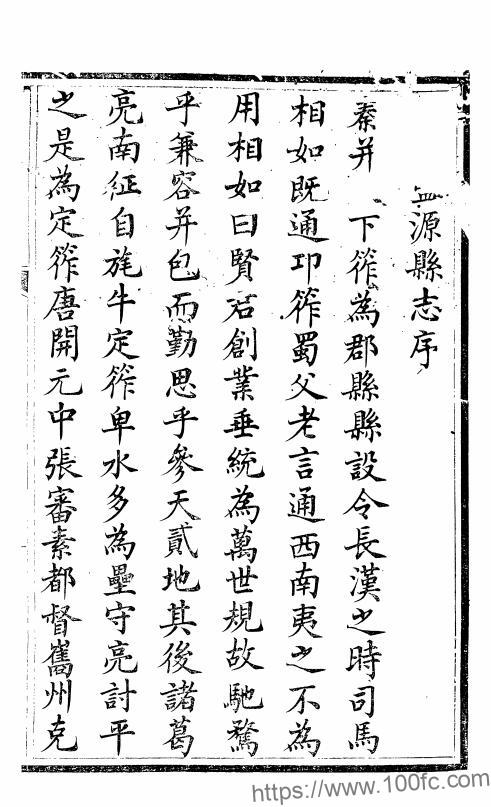 源縣志序
秦并 下筰為郡縣縣設令長漢之時司馬
相如既通卭筰蜀父老言通西南夷之不為
用相如曰賢君創業垂統為萬世規故馳騖
乎兼容并包而勤思乎參天貳地其後諸葛
亮南征自旄牛定筰卑水多為壘守亮討平
之是為定筰唐開元中張審素都督巂州克
https://www.100fc.com